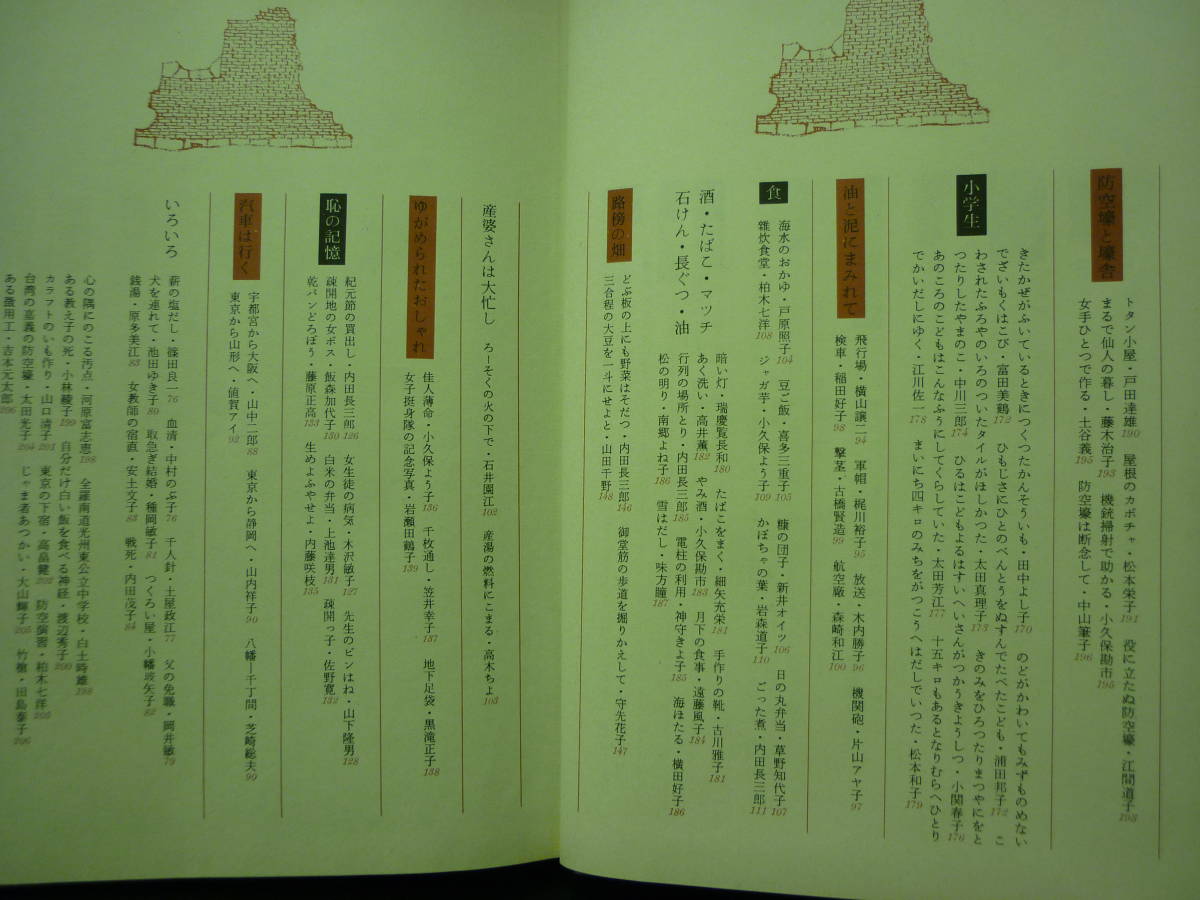 防空壕と壕舎
トタン小屋・戸田達雄190　屋根のカボチャ・松本栄子191　役に立たぬ防空壕・江間道子193
まるで仙人の暮し・藤木治子193　機銃掃射で助かる・小久保勘市195
女手ひとつで作る・土谷義195　防空壕は断念して・中山筆子196
小学生
きたかぜがふいているときにつくつたかんそういも・田中よし子170　のどがかわいてもみずものめない
でざいもくはこび・富田美鶴172　ひもじさにひとのべんとうをぬすんでたべたこども・浦田邦子172　こ
わされたふろやのいろのついたタイルがほしかつた・太田真理子173　きのみをひろつたりまつやにをと
つたりしたやまのこ・中川三郎174　ひるはこどもよるはすいへいさんがつかうきようしつ・小関春子176
あのころのこどもはこんなふうにしてくらしていた・太田芳江177　十五キロもあるとなりむらへひとり
でかいだしにゆく・江川佐一178　まいにち四キロのみちをがつこうへはだしでいつた・松本和子179
油と泥にまみれて
飛行場・横山譲二94　軍帽・梶川裕子95　放送・木内勝子96　機関砲・片山アヤ子97
検車・稲田好子98　撃茎・古橋賢造99　航空廠・森崎和江100
食
海水のおかゆ・戸原照子104　豆ご飯・喜多三重子105　糠の団子・新井オイツ106　日の丸弁当・草野知代子107
雑炊食堂・柏木七洋108　ジャガ芋・小久保よう子109　かぼちゃの葉・岩森道子110　ごった煮・内田長三郎111
酒・たばこ・マッチ
石けん・長ぐつ・油
暗い灯・瑞慶覧長和180　たばこをまく・細矢充栄181　手作りの靴・古川雅子181
あく洗い・高井薫182　やみ酒・小久保勘市183　月下の食事・遠藤風子184
行列の場所とり・内田長三郎185　電柱の利用・神守きよ子185　海ほたる・横田好子186
松の明り・南郷よね子186　雪はだし・味方瞳187
路傍の畑
どぶ板の上にも野菜はそだつ・内田長三郎146　御堂筋の歩道を掘りかえして・守先花子147
三合程の大豆を一斗にせよと・山田千野148
産婆さんは大忙し　ろーそくの火の下で・石井園江102　産湯の燃料にこまる・高木ちよ103
ゆがめられたおしゃれ
佳人薄命・小久保よう子136　千枚通し・笠井幸子137　地下足袋・黒滝正子138
女子挺身隊の記念写真・岩瀬田鶴子139
恥の記憶
紀元節の買出し・内田長三郎126　女生徒の病気・木沢敏子127　先生のビンはね・山下隆男128
疎開地の女ボス・飯森加代子130　白米の弁当・上池達男131　疎開っ子・佐野寛132
乾パンどろぼう・藤原正高133　生めよふやせよ・内藤咲枝135
汽車は行く
宇都宮から大阪へ・山中二郎88　東京から静岡へ・山内祥子90　八幡・千丁間・芝崎総夫90
東京から山形へ・値賀アイ92
いろいろ
薪の塩だし・篠田良一76　血清・中村のぶ子76　千人針・土屋政江77　父の免職・岡井敏79
犬を連れて・池田ゆき子80　取急ぎ結婚・種岡敏子81　つくろい屋・小幡玻矢子82
銭湯・原多美江83　女教師の宿直・安士文子83　戦死・内田茂子84
心の隅にのこる汚点・河原富志恵198　全羅南道光州東公立中学校・白土時雄198
ある教え子の死・小林綾子199　自分だけ白い飯を食べる神経・渡辺秀子200
カラフトのいも作り・山口清子201　東京の下宿・高畠健202　防空演習・柏木七洋203
台湾の嘉義の防空壕・太田光子204　じゃま者あつかい・大山輝子205　竹槍・田島泰子206
ある徴用工・吉本元太郎206